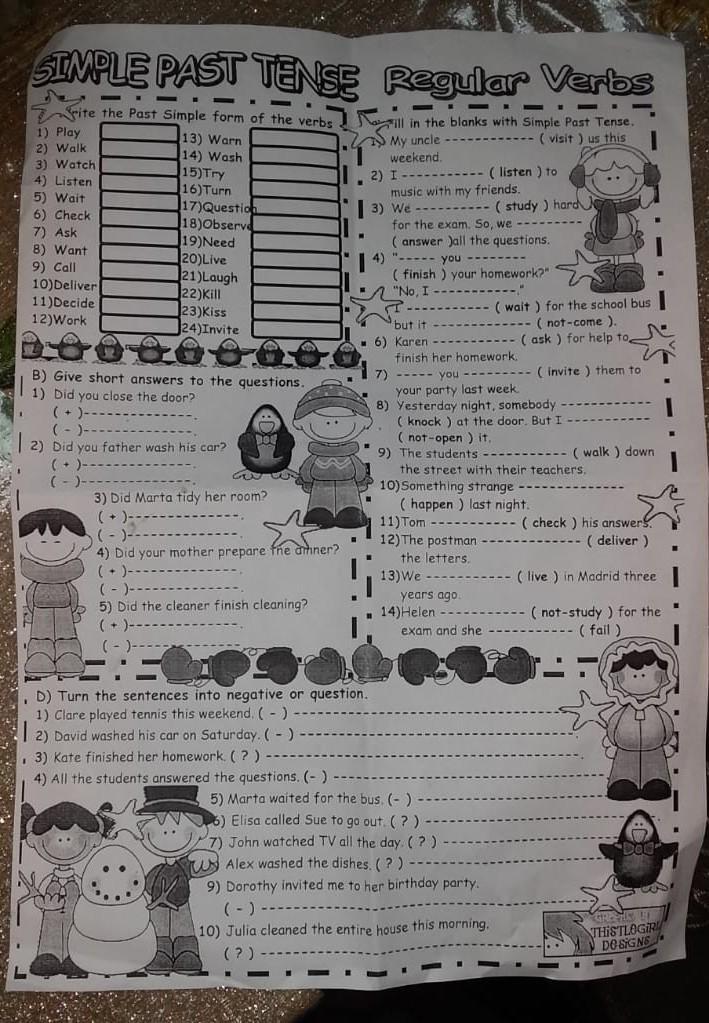 SIMPLE PAST TENSE Regular Verbs
rite the Past Simple form of the verbs
1) Play
2) Walk
3) Watch
4) Listen
5) Wait
6) Check
7) Ask
8) Want
9) Call
10)Deliver
11)Decide
12)Work
13) Warn
14) Wash
15)Try
16)Turn
17)Question
18)Observe
19)Need
20)Live
21)Laugh
22)Kill
23)Kiss
24)Invite
B) Give short answers to the questions.
1) Did you close the door?
( + )----------------.
( - )----------------.
2) Did you father wash his car?
( + )----------------.
( - )----------------.
3) Did Marta tidy her room?
( + )----------------.
( - )----------------.
4) Did your mother prepare the dinner?
( + )----------------.
( - )----------------.
5) Did the cleaner finish cleaning?
( + )----------------.
( - )----------------.
ill in the blanks with Simple Past Tense.
My uncle ------------- ( visit ) us this
weekend.
2) I ------------ ( listen ) to
music with my friends.
3) We ----------- ( study ) hard
for the exam. So, we ----------
( answer )all the questions.
4) "----- you --------
( finish ) your homework?"
"No, I ------------."
I -------------- ( wait ) for the school bus
but it ------------ ( not-come ).
6) Karen ------------ ( ask ) for help to
finish her homework.
7) ----- you --------- ( invite ) them to
your party last week.
8) Yesterday night, somebody --------------
( knock ) at the door. But I ------------
( not-open ) it.
9) The students ------------ ( walk ) down
the street with their teachers.
10)Something strange ----------------
( happen ) last night.
11)Tom -------------- ( check ) his answers.
12)The postman -------------- ( deliver )
the letters.
13)We ------------- ( live ) in Madrid three
years ago.
14)Helen ------------ ( not-study ) for the
exam and she ------------- ( fail )
D) Turn the sentences into negative or question.
1) Clare played tennis this weekend. ( - ) --------------------------------
2) David washed his car on Saturday. ( - ) --------------------------------
3) Kate finished her homework. ( ? ) --------------------------------.
4) All the students answered the questions. (- ) --------------------------------
5) Marta waited for the bus. (- ) --------------------------------
6) Elisa called Sue to go out. ( ? ) --------------------------------
7) John watched TV all the day. ( ? ) --------------------------------
Alex washed the dishes. ( ? ) --------------------------------
9) Dorothy invited me to her birthday party.
( - ) --------------------------------
10) Julia cleaned the entire house this morning.
( ? ) --------------------------------
GRAPHICS BY
THISTLEGIRL
DESIGNS